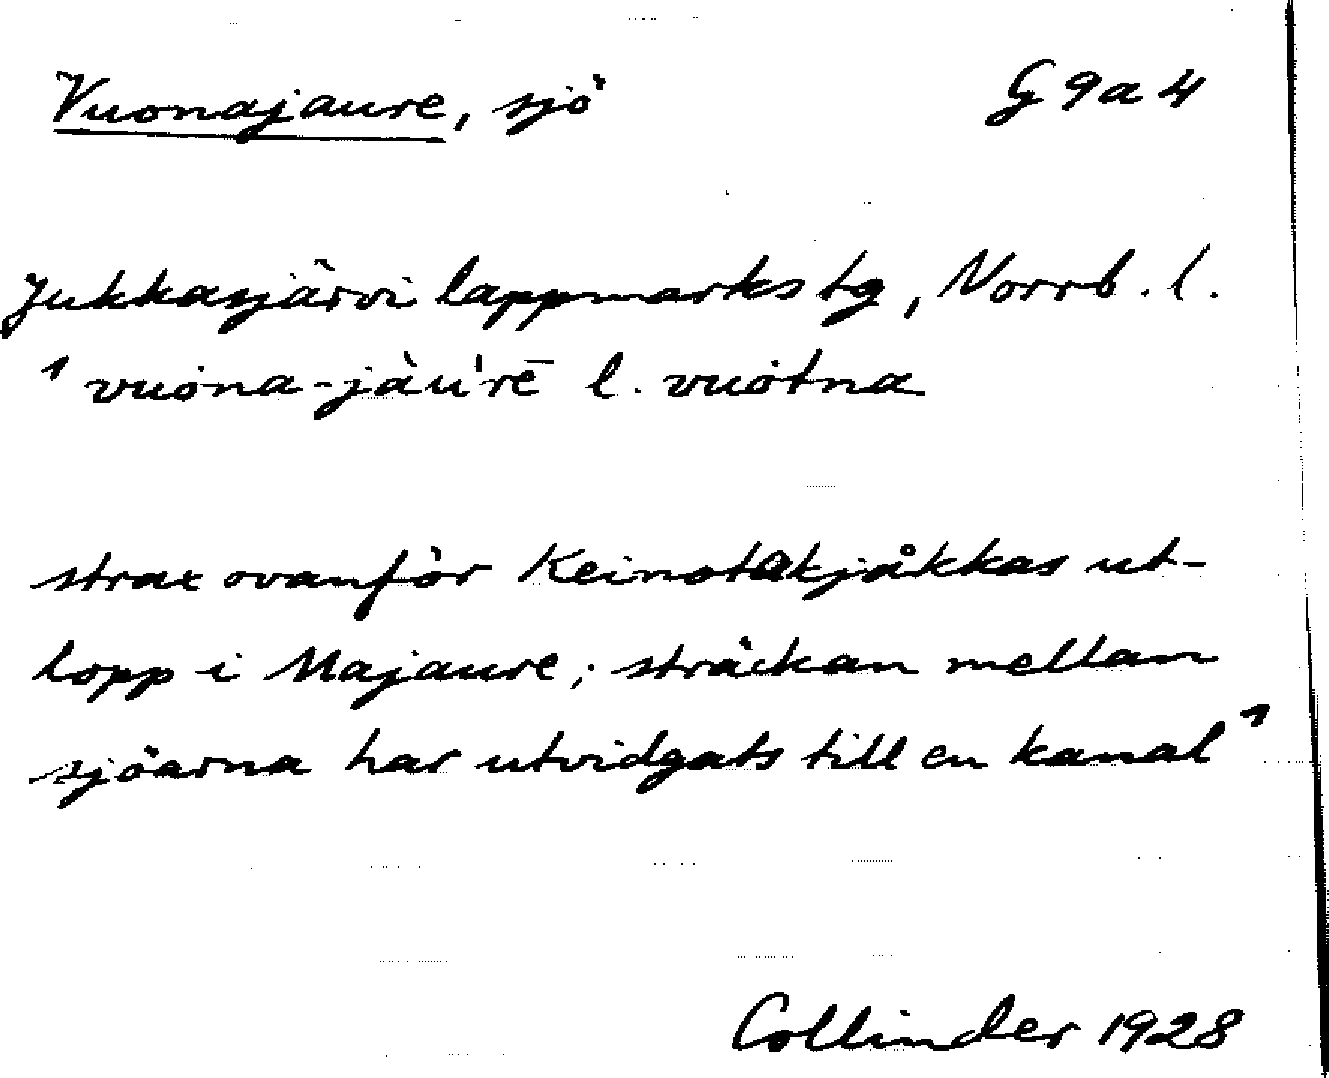 Vuonajaure, sjö G 9 a 4
Jukkasjärvi lappmarks tg, Norrb. l.
' vuȯna-jàu'rē l. vuȯtna
strax ovanför Keinotakjåkkas ut-
lopp i Majaure; sträckan mellan
sjöarna har utvidgats till en kanal '
Collinder 1928